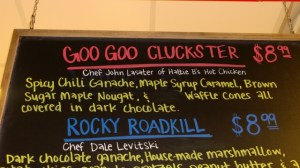 GOO GOO CLUCKSTER $8.99
Chef John Lasater of Hattie B's Hot Chicken
Spicy Chili Ganache, Maple Syrup Caramel, Brown
Sugar Maple Nougat, & Waffle Cones all
covered in dark chocolate.
ROCKY ROADKILL $8.99
Chef Dale Levitski
Dark chocolate ganache, house-made marshmallow,
peanut butter